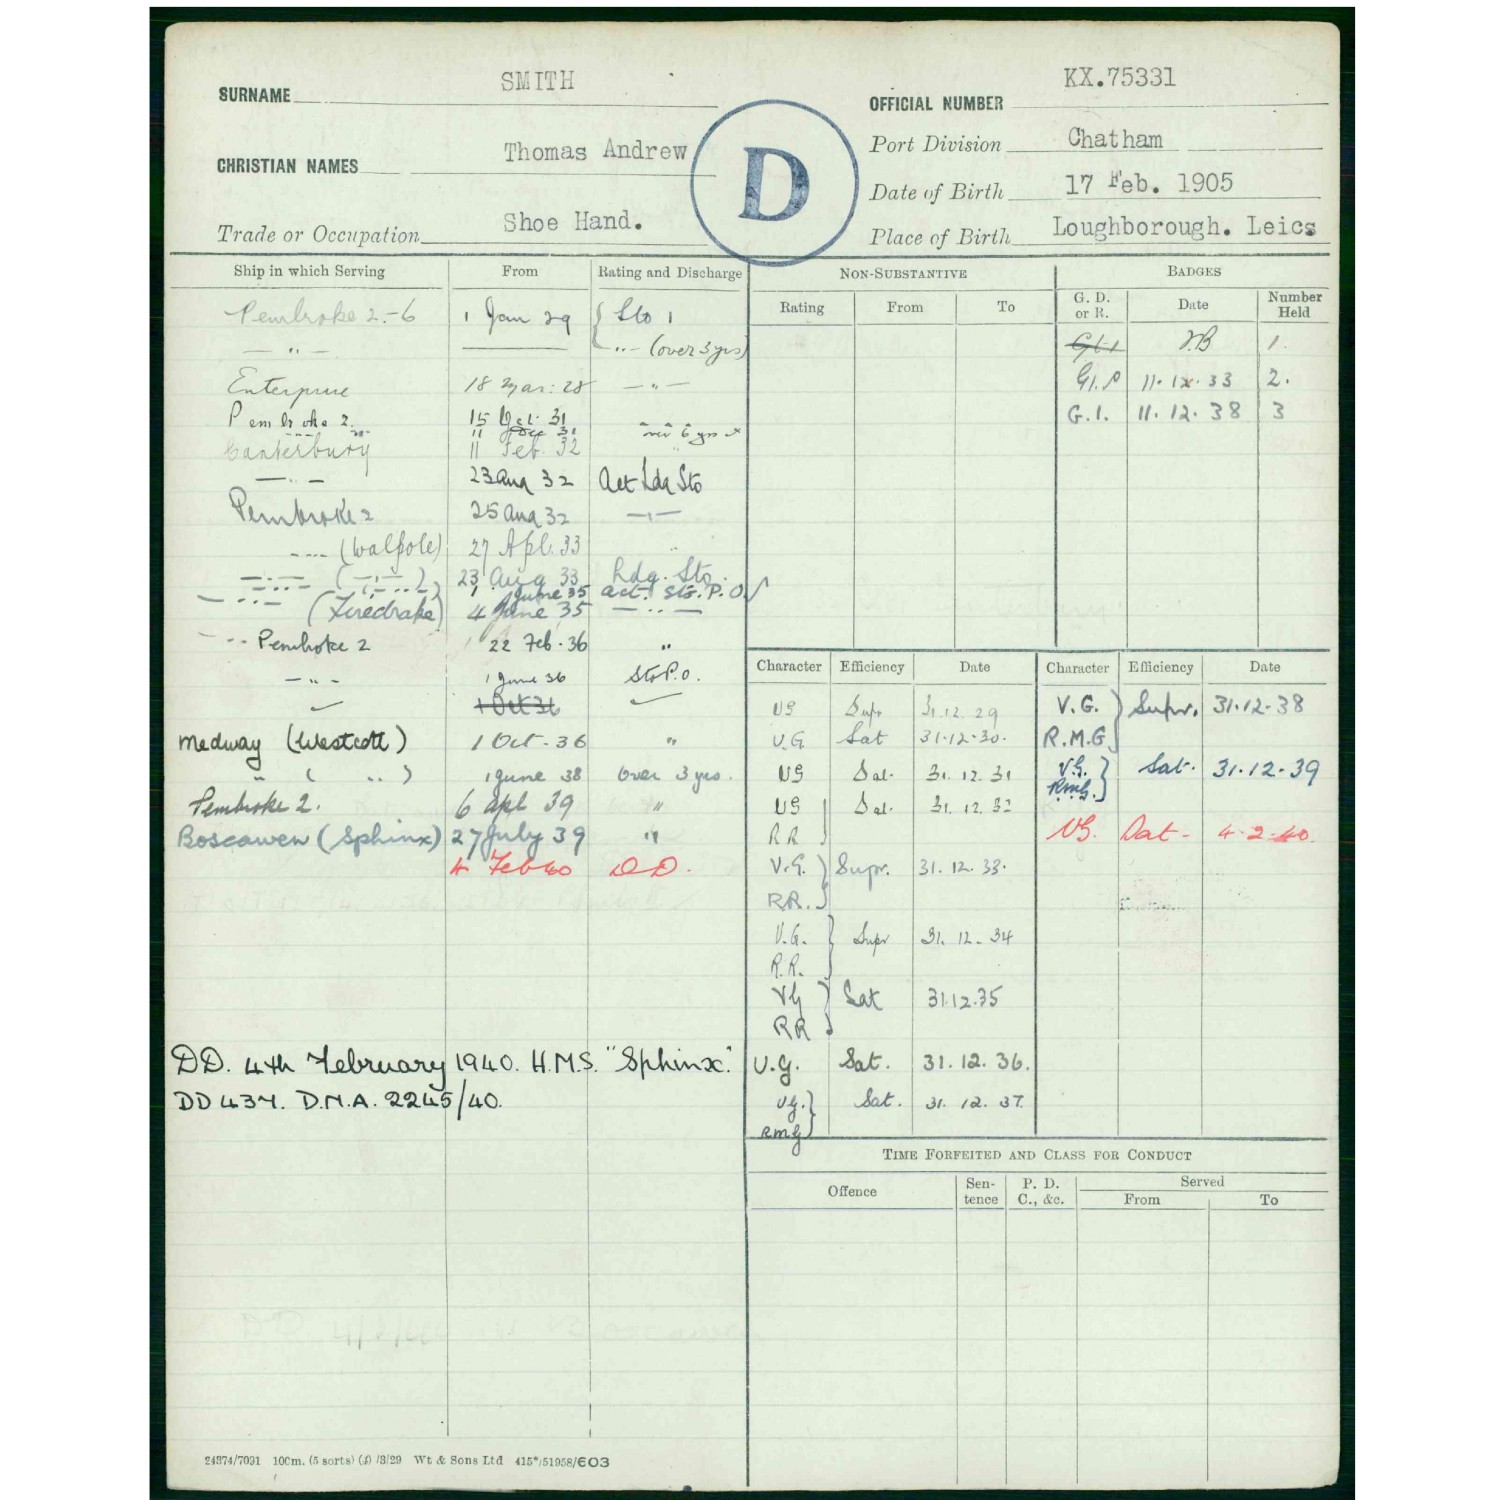 SURNAME SMITH
OFFICIAL NUMBER KX.75331
CHRISTIAN NAMES Thomas Andrew
D
Port Division Chatham
Date of Birth 17 Feb. 1905
Trade or Occupation Shoe Hand.
Place of Birth Loughborough. Leics
Ship in which Serving From Rating and Discharge
Pembroke 2.-6 1 Jan 29 Sto 1
— " — —— " — (over 3 yrs)
Enterprise 18 Mar: 28 — " —
Pembroke 2 15 Oct. 31
" 11 Dec 31 over 6 yrs
Canterbury 11 Feb. 32 "
— " — 23 Aug 32 Act Ldg Sto
Pembroke 2 25 Aug 32 — " —
---- (Walpole) 27 Apl. 33 "
— .. — ( — " — ) 23 Aug 33 Ldg. Sto.
— .. — ( — .. — ) 1 June 35 act. Sto. P.O.
— .. — (Firedrake) 4 June 35 — .. —
-- Pembroke 2 22 Feb. 36 "
— " — 1 June 36 Sto P.O.
1 Oct 36
Medway (Westcott) 1 Oct. 36 "
" ( " ) 1 June 38 Over 3 yrs.
Pembroke 2. 6 Apl 39 "
Boscawen (Sphinx) 27 July 39 "
4 Feb 40 DD.
DD. 4th February 1940. H.M.S. "Sphinx."
DD 437. D.N.A. 2245/40.
NON-SUBSTANTIVE
Rating From To
BADGES
G. D. or R. Date Number Held
G1 1.
G1. 11. 12. 33 2.
G. 1. 11. 12. 38 3
Character Efficiency Date
VG Supr 31.12.29
V.G. Sat 31.12.30.
VG Sat. 31. 12. 31
VG Sat. 31. 12. 32
RR
V.G. Supr. 31. 12. 33.
RR.
V.G. Supr 31. 12. 34
R.R.
VG Sat 31.12.35
RR
V.G. Sat. 31. 12. 36.
VG. Sat. 31. 12. 37.
RMG
Character Efficiency Date
V.G. Supr. 31.12.38
R.M.G
V.G. Sat. 31.12.39
RMG.
VG. Sat. 4.2.40.
TIME FORFEITED AND CLASS FOR CONDUCT
Offence Sentence P. D. C., &c. Served
From To
24374/7091 100m. (5 sorts) (4) /3/29 Wt & Sons Ltd 415*/51958/603